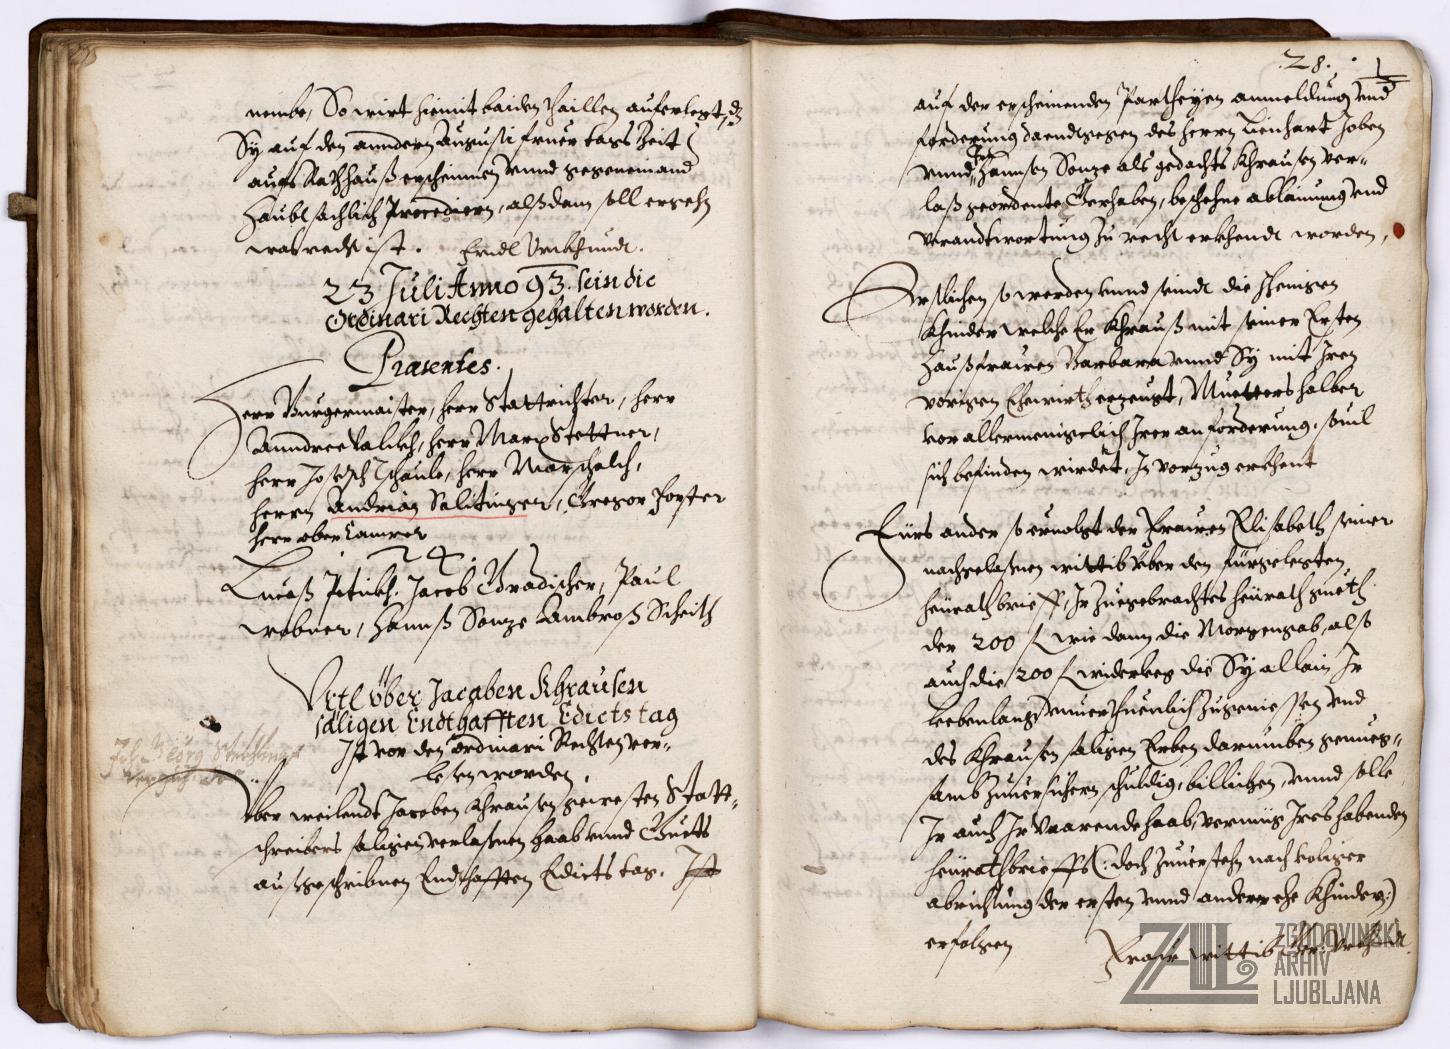 nembe, So wirt hiemit baiden thaillen auferlegt, dz
Sy auf den anndern Augusti fruer tags Zeit
aufs Rathhauß erscheinen vnnd gegeneinand
Haubtsachlich Procediern, alßdann soll ergehn
was recht ist. Endl Vrkhundt.
23 Juli Anno 93. sein die
Ordinari Rechten gehalten worden.
Praesentes.
Herr Burgermaister, herr Stattrichter, herr
Anndree Falckh, herr Marx Stettner,
herr Joseph Tschaule, herr Marschalch,
herrn Andrian Salitinger, Gregor Porter
herr ober Camrer
24.
Lucaß Jacob Gradischer, Paul
Webner, Hannß Sonze Ambroß Scheith
Vrtl über Jacoben Khrausen
säligen Endthafften Edicts tag
Ist vor den ordinari Rechten ver-
lesen worden.
Vber weilendt Jacoben Khrausen gewesten Statt-
schreibers saligen verlaßnen Haab vnnd Guets
außgeschribnen Endthafften Edicts tag. Ist
28.
auf der erscheinenden Partheyen anmeldung vnd
forderung, daentgegen des herrn Lienhart
vnnd Hannsen Sonze als gedachts Khrausen ver-
laß geordente Gerhaben, beschehne ablainung vnd
verandtwortung zu recht erkhendt worden,
Erstlichen so werden vnnd seindt die Jhenigen
Khinder welche Er Khrauß mit seiner Ersten
Haußfrawen Barbara vnnd Sy mit Iren
vorigen Ehewirth erzeugt, Muetters halber
vor allermenigclich Irer anforderung, souil
sich befinden wirdet, In vorzug erkhent
Fürs ander so ervolgt der Frawen Elisabeth seiner
nachgelaßnen wittib über den fürgelegten
heürathbrieff, Ir zuegebrachtes heürathguett
der 200 fl wie dann die Morgengab, alß
auch die 200 fl widerleg die Sy allain Ir
lebenlang vnuerthuenlich zugeniessen vnd
des Khrausen saligen Erben darumben genueg-
samb zuuersichern schuldig, billichen, vnnd solle
Ir auch Ir Vaarende haab, vermüg Ires habenden
heürathbrieffs (: doch zuuerstehn nach völliger
abrichtung der ersten vnnd anderr ehe Khinder:)
erfolgen
Fraw wittib
ZAL
ZGODOVINSKI
ARHIV
LJUBLJANA